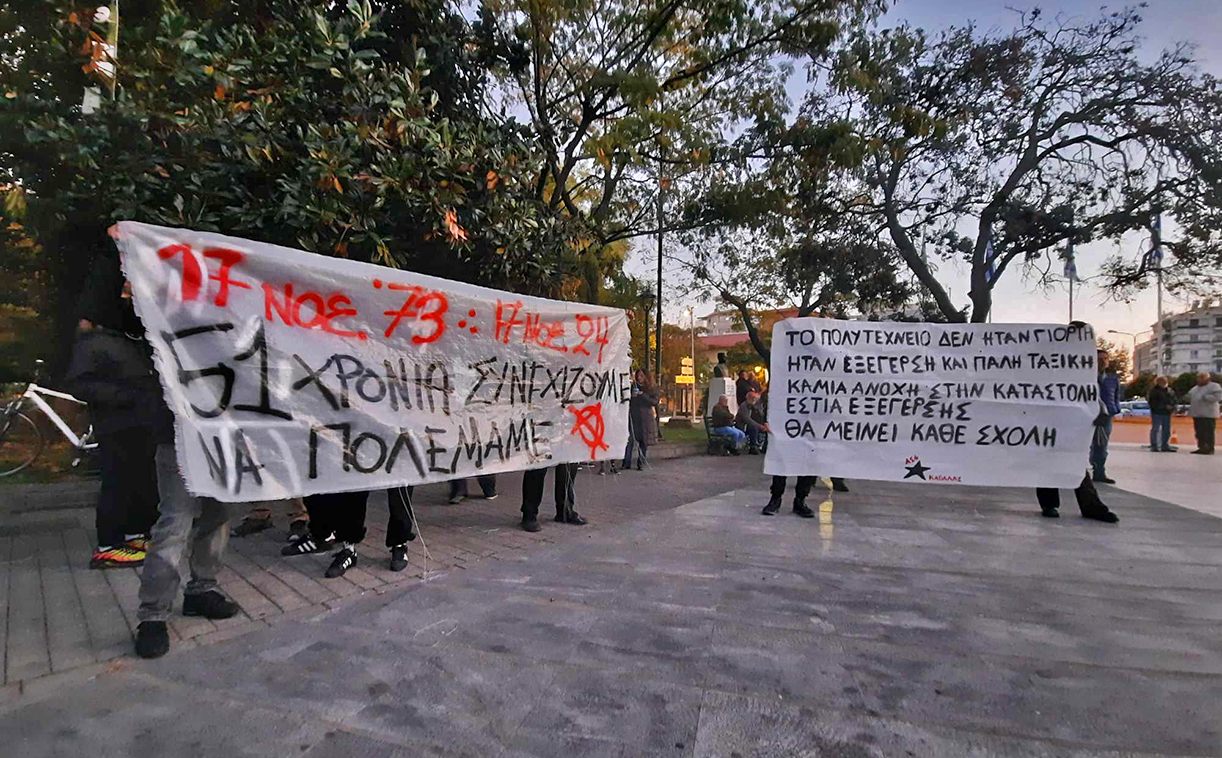 17 ΝΟΕ. '73 ∴ 17 ΝΟΕ. 24
51 ΧΡΟΝΙΑ ΣΥΝΕΧΙΖΟΥΜΕ
ΝΑ ΠΟΛΕΜΑΜΕ
ΤΟ ΠΟΛΥΤΕΧΝΕΙΟ ΔΕΝ ΗΤΑΝ ΓΙΟΡΤΗ
ΗΤΑΝ ΕΞΕΓΕΡΣΗ ΚΑΙ ΠΑΛΗ ΤΑΞΙΚΗ
ΚΑΜΙΑ ΑΝΟΧΗ ΣΤΗΝ ΚΑΤΑΣΤΟΛΗ
ΕΣΤΙΑ ΕΞΕΓΕΡΣΗΣ
ΘΑ ΜΕΙΝΕΙ ΚΑΘΕ ΣΧΟΛΗ
ΚΑΒΑΛΑΣ